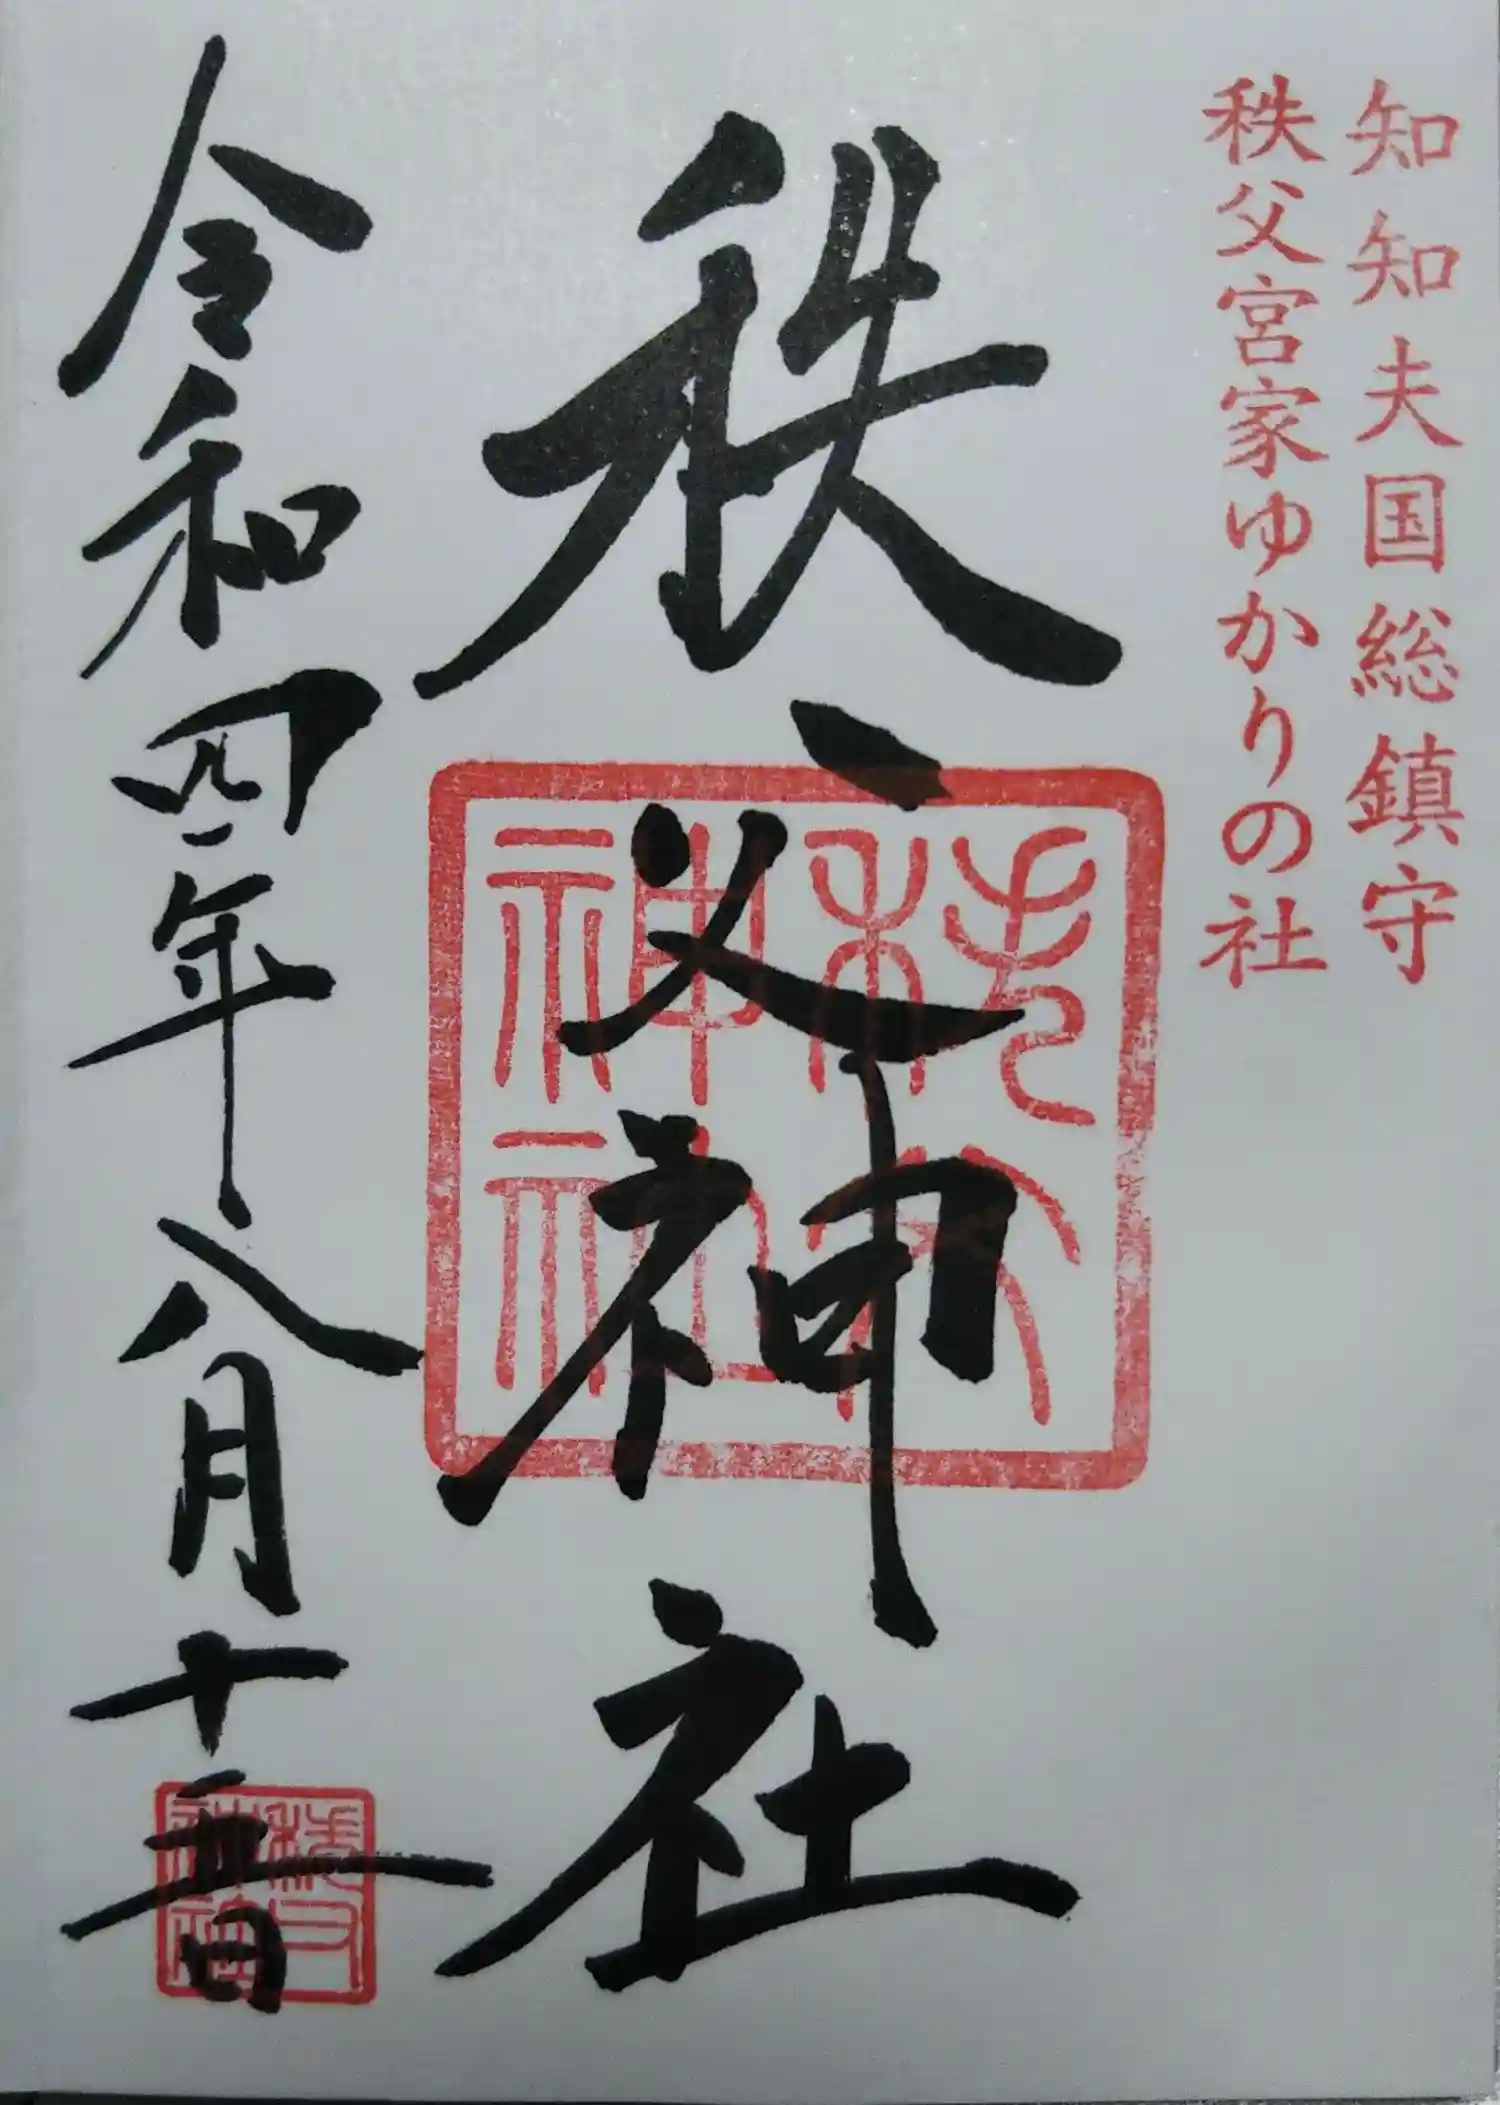 知知夫国総鎮守
秩父宮家ゆかりの社
秩父神社
秩父神社
令和四年八月十五日
秩父神社